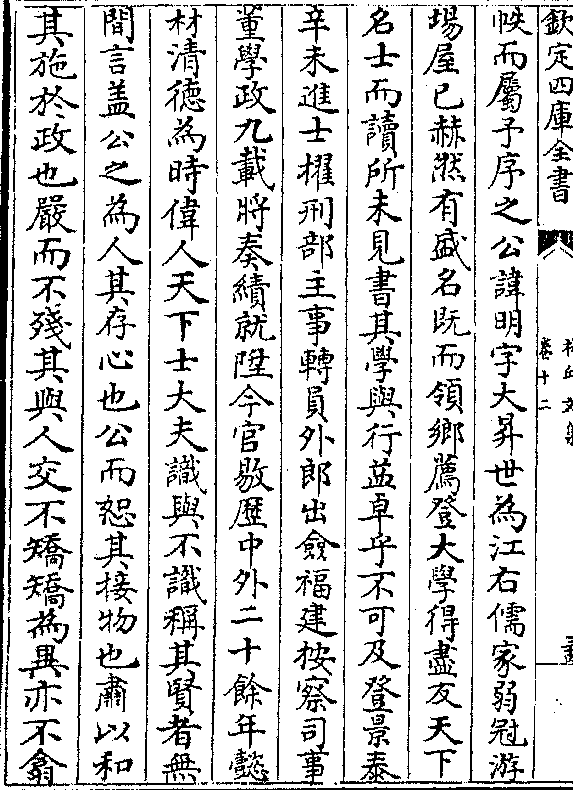 欽定四庫全書
卷十二
帙而屬予序之公諱明字大昇世為江右儒家弱冠游
場屋已赫然有盛名既而領鄉薦登大學得盡友天下
名士而讀所未見書其學與行益卓乎不可及登景泰
辛未進士擢刑部主事轉員外郎出僉福建按察司事
董學政九載將奏績就陞今官敭歴中外二十餘年懿
材清德為時偉人天下士大夫識與不識稱其賢者無
間言盖公之為人其存心也公而恕其接物也肅以和
其施於政也嚴而不殘其與人交不矯矯為異亦不翕